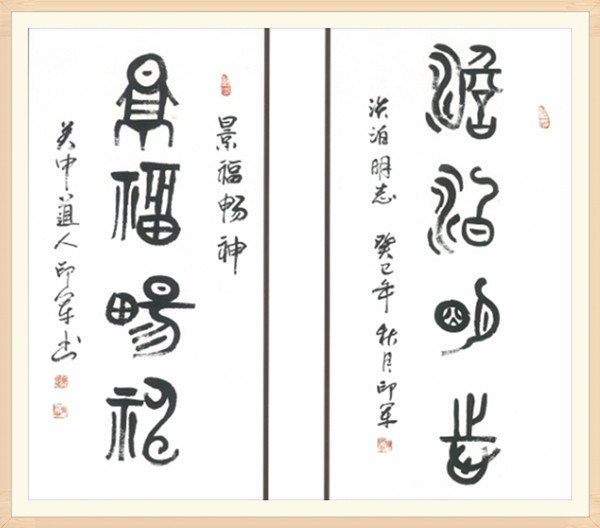 澹泊明志
淡泊明志 癸巳年 秋月印军
景福畅神
景福畼神
关中道人印军书